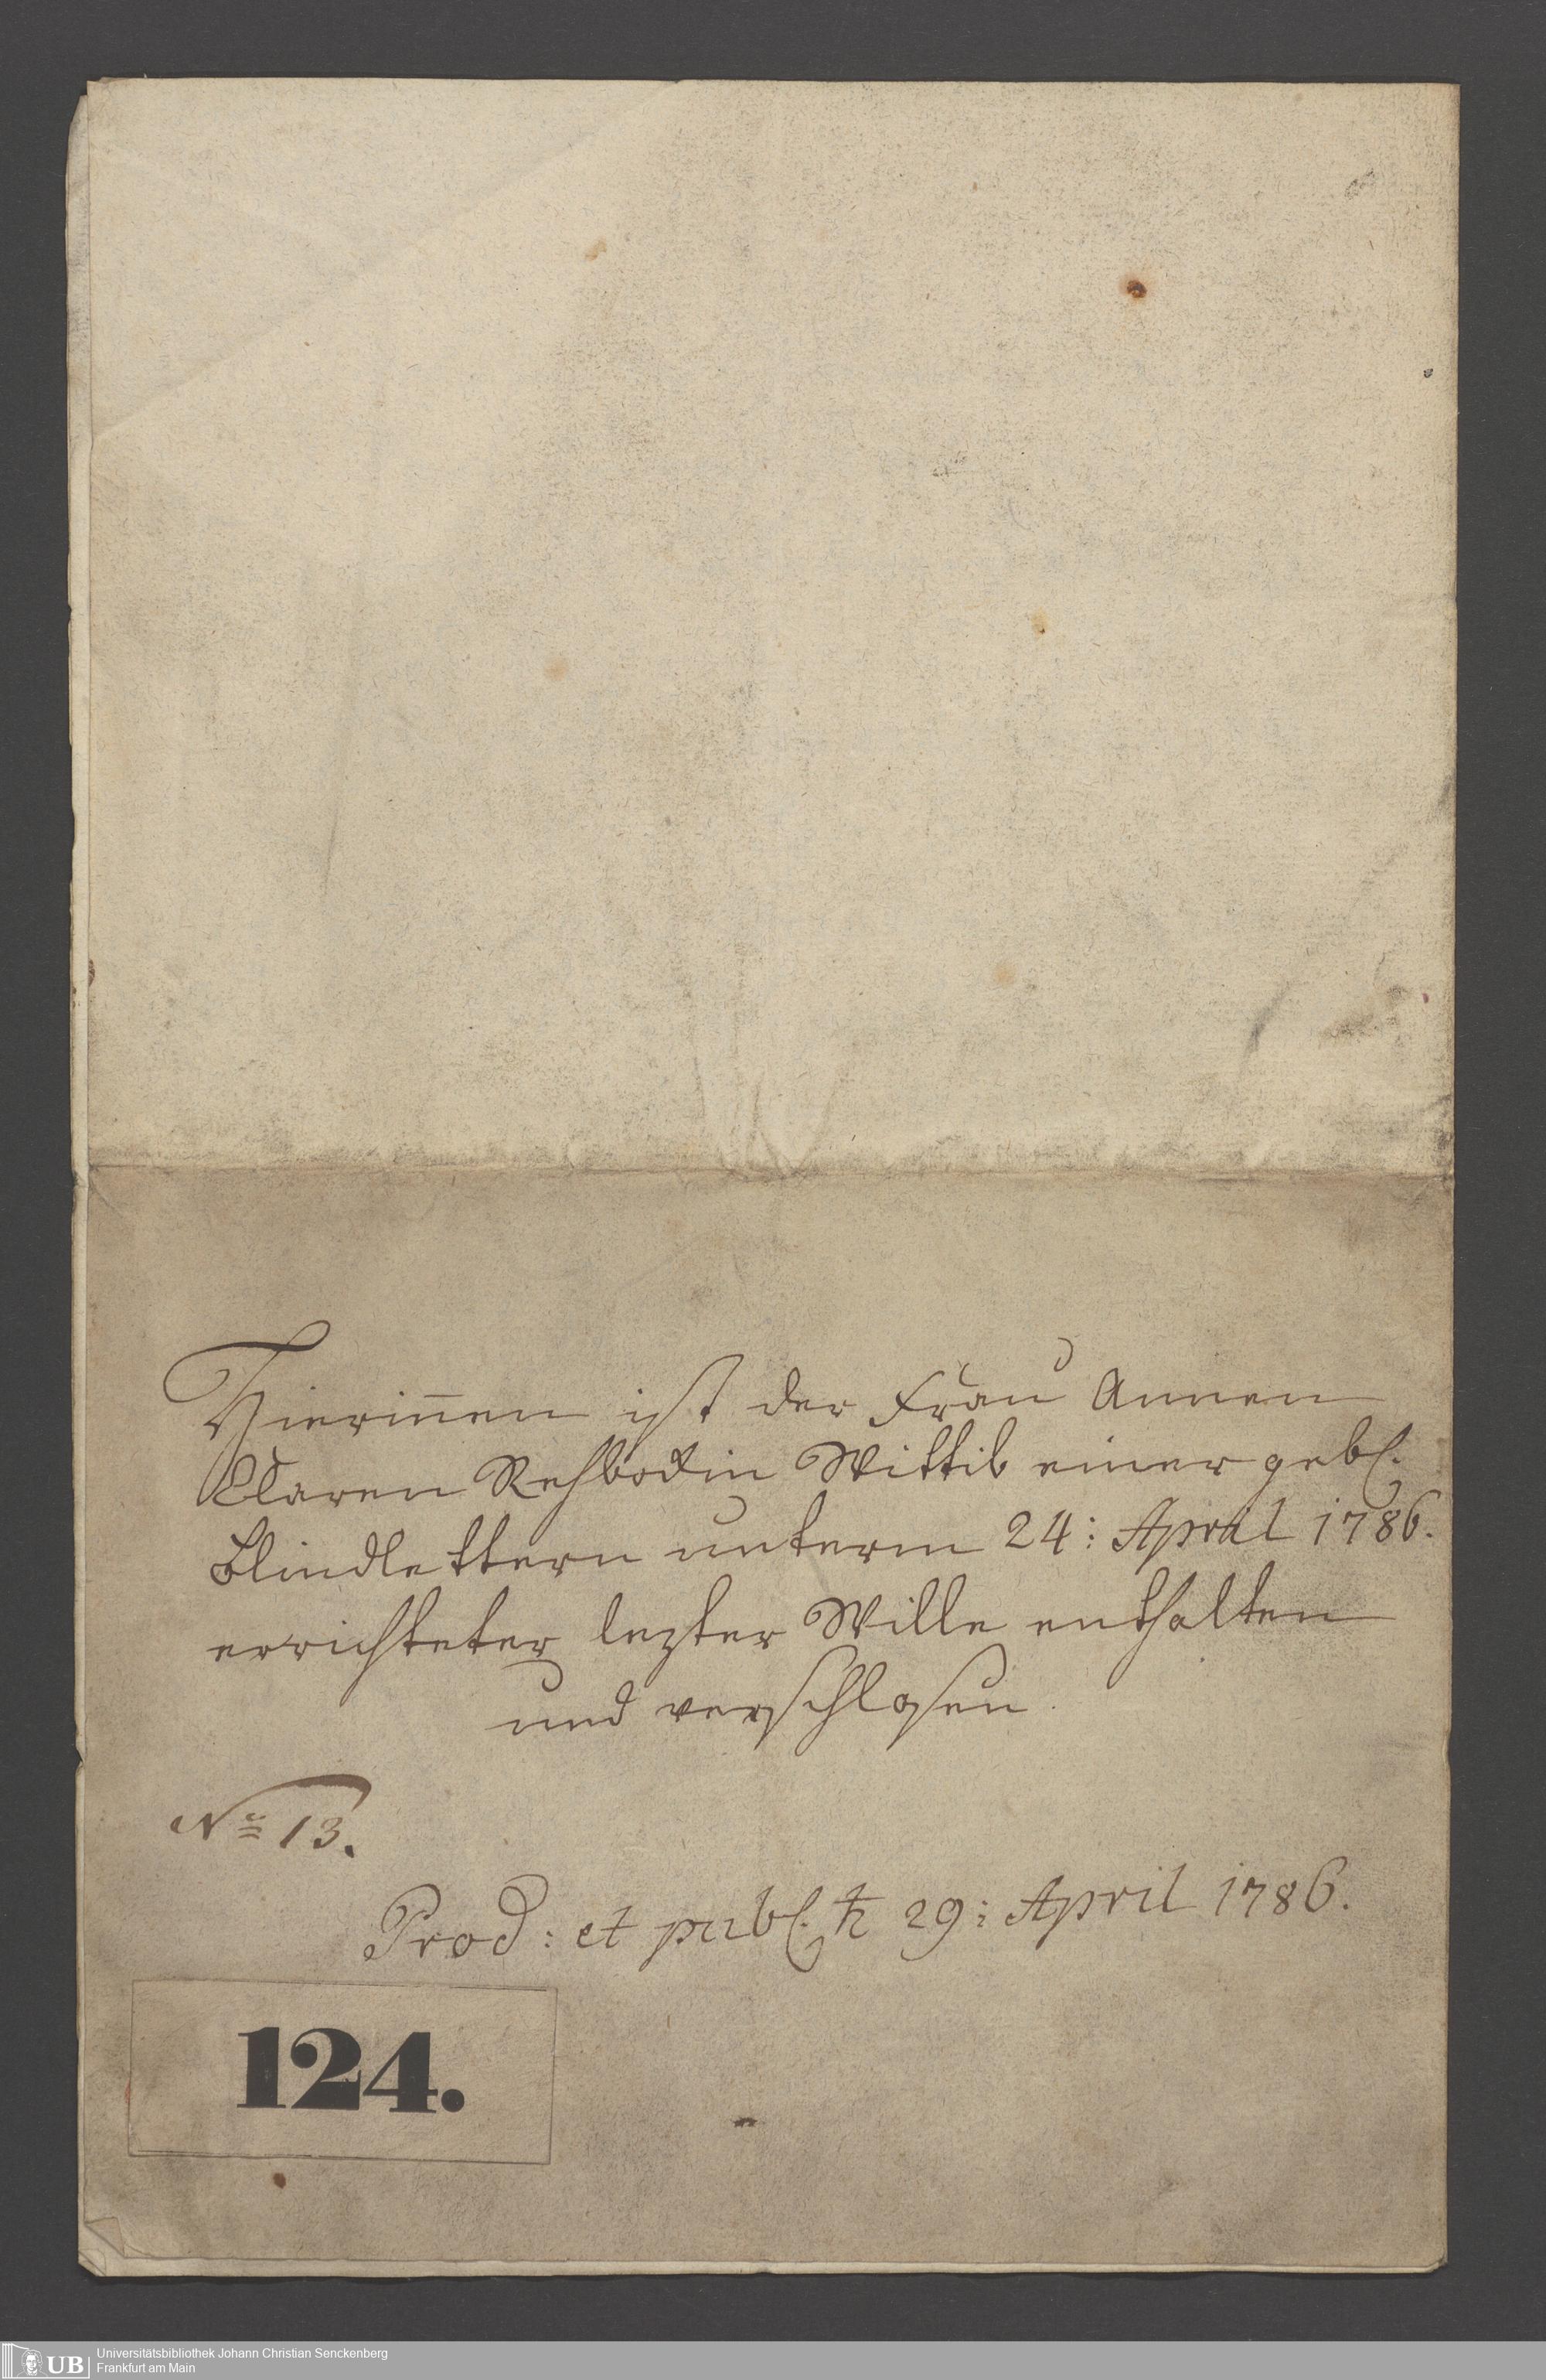 Hierin̄en ist der Frau Annen
Claren Rehbockin Wittib einer gebl.
Blindlettern unterm 24: April 1786.
errichteter lezter Wille enthalten
und verschlosen.
No 13.
Prod: et publ. ♄ 29: April 1786.
124.
UB
Universitätsbibliothek Johann Christian Senckenberg
Frankfurt am Main